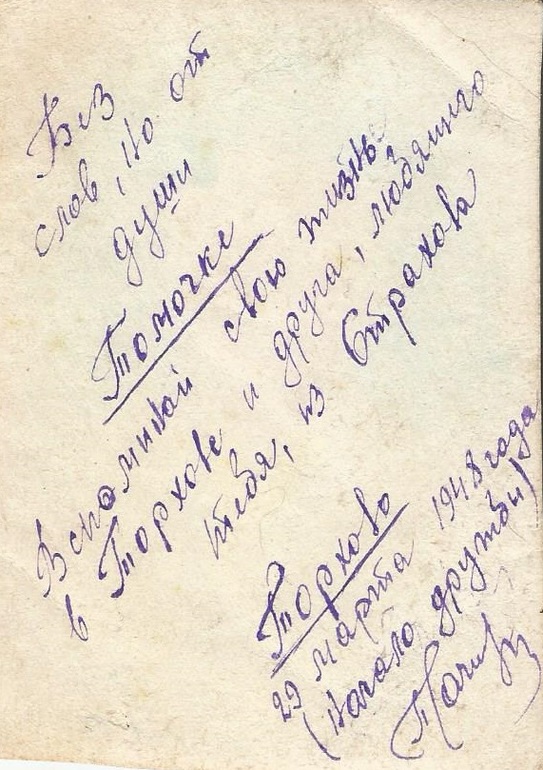 Без
слов, но от
души
Томочке
Вспоминай свою жизнь
в Торхове и друга, любящего
тебя, из Страхова
Торхово
29 марта 1948 года
(начало дружбы)